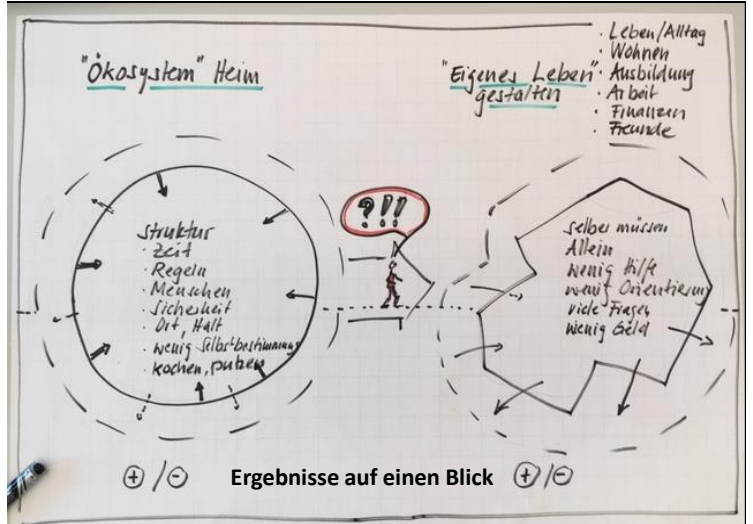 "Ökosystem" Heim
"Eigenes Leben"
gestalten
· Leben/Alltag
· Wohnen
· Ausbildung
· Arbeit
· Finanzen
· Freunde
Struktur
· Zeit
· Regeln
· Menschen
· Sicherheit
· Ort, Halt
· wenig Selbstbestimmung
· kochen, putzen
?!!
selber müssen
Allein
wenig Hilfe
wenig Orientierung
viele Fragen
wenig Geld
+ / -
Ergebnisse auf einen Blick
+ / -